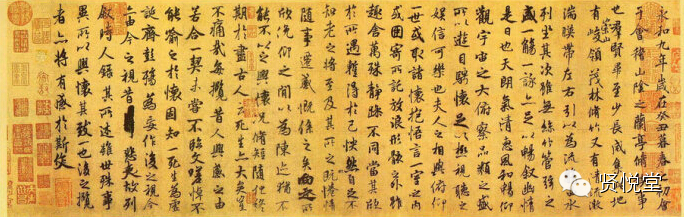 永和九年歲在癸丑暮春之初會
于會稽山陰之蘭亭脩稧事
也群賢畢至少長咸集此地
有崇山峻領茂林脩竹又有清流激
湍暎帶左右引以為流觴曲水
列坐其次雖無絲竹管弦之
盛一觴一詠亦足以暢敘幽情
是日也天朗氣清惠風和暢仰
觀宇宙之大俯察品類之盛
所以遊目騁懷足以極視聽之
娛信可樂也夫人之相與俯仰
一世或取諸懷抱悟言一室之內
或因寄所託放浪形骸之外雖
趣舍萬殊靜躁不同當其欣
於所遇蹔得於己怏然自足不
知老之將至及其所之既惓情
隨事遷感慨係之矣向之所
欣俛仰之閒以為陳迹猶不
能不以之興懷況脩短隨化終
期於盡古人云死生亦大矣豈
不痛哉每攬昔人興感之由
若合一契未嘗不臨文嗟悼不
能喻之於懷固知一死生為虛
誕齊彭殤為妄作後之視今
亦由今之視昔悲夫故列
敘時人錄其所述雖世殊事
異所以興懷其致一也後之攬
者亦將有感於斯文
贤悦堂